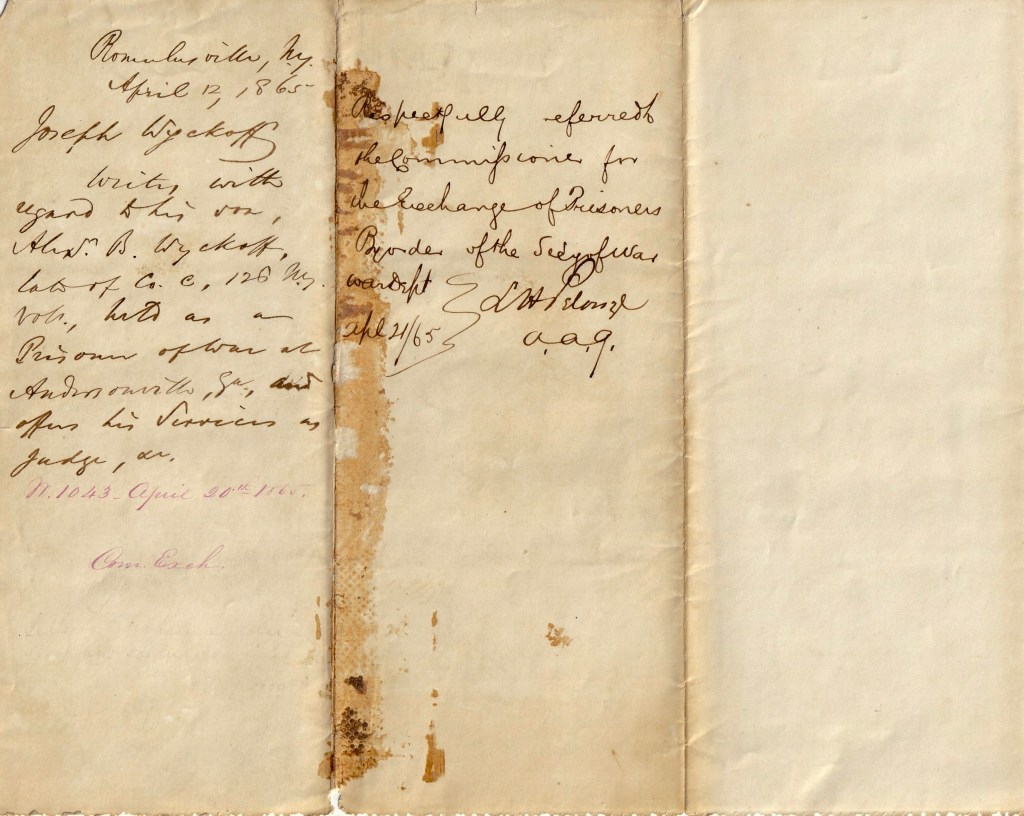 Romulusville, N.Y.
April 12, 1865
Joseph Wyckoff
Writes with
regard to his son,
Alexr. B. Wyckoff,
late of Co. C, 126 N.Y.
Vols., held as a
Prisoner of War at
Andersonville, Ga., and
offers his Services as
Judge, &c.
W. 1043 - April 20th 1865.
Com. Exch.
Respectfully referred to
the Commissioner for
the Exchange of Prisoners
By order of the Secy of War
War Dept
apl 21/65
L H Pelouze
a.a.g.